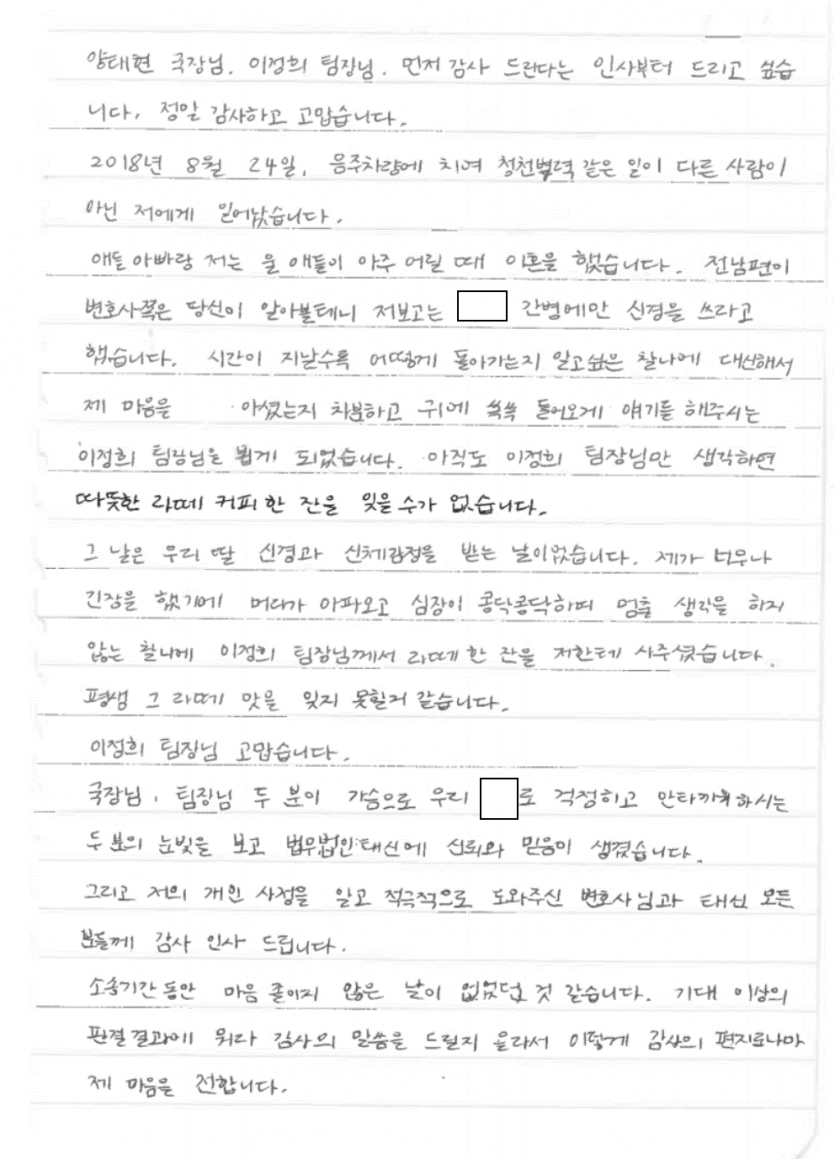 양태현 국장님. 이정희 팀장님. 먼저 감사 드린다는 인사부터 드리고 싶습
니다. 정말 감사하고 고맙습니다.
2018년 8월 24일, 음주차량에 치여 청천벽력 같은 일이 다른 사람이
아닌 저에게 일어났습니다.
애들 아빠랑 저는 울 애들이 아주 어릴 때 이혼을 했습니다. 전남편이
변호사쪽은 당신이 알아볼테니 저보고는 간병에만 신경을 쓰라고
했습니다. 시간이 지날수록 어떻게 돌아가는지 알고싶은 찰나에 대신해서
제 마음을 아셨는지 차분하고 귀에 쏙쏙 들어오게 얘기를 해주시는
이정희 팀장님을 뵙게 되었습니다. 아직도 이정희 팀장님만 생각하면
따뜻한 라떼 커피 한 잔을 잊을 수가 없습니다.
그 날은 우리 딸 신경과 신체감정을 받는 날이었습니다. 제가 너무나
긴장을 했기에 머리가 아파오고 심장이 콩닥콩닥하며 멈출 생각을 하지
않는 찰나에 이정희 팀장님께서 라떼 한 잔을 저한테 사주셨습니다.
평생 그 라떼 맛을 잊지 못할거 같습니다.
이정희 팀장님 고맙습니다.
국장님, 팀장님 두 분이 가슴으로 우리 로 걱정하고 안타까워하시는
두 분의 눈빛을 보고 법무법인태신에 신뢰와 믿음이 생겼습니다.
그리고 저의 개인 사정을 알고 적극적으로 도와주신 변호사님과 태신 모든
분들께 감사 인사 드립니다.
소송기간 동안 마음 졸이지 않은 날이 없었던 것 같습니다. 기대 이상의
판결결과에 뭐라 감사의 말씀을 드릴지 몰라서 이렇게 감사의 편지로나마
제 마음을 전합니다.